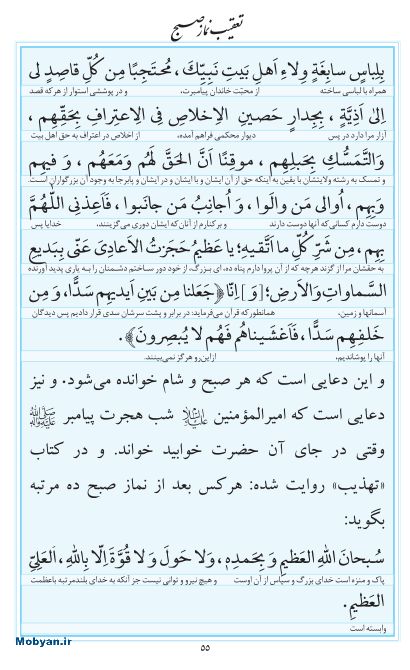 تعقیب نماز صبح
بِلِباسٍ سابِغَةٍ وِلاءِ اَهلِ بَیتِ نَبِیِّكَ، مُحتَجِبًا مِن کُلِّ قاصِدٍ لی
همراه با لباسی ساخته از محبّت خاندان پیامبرت، و در پوششی استوار از هر که قصد
اِلیٰ اَذِیَّةٍ، بِجِدارٍ حَصینِ الاِخلاصِ فِی الاِعتِرافِ بِحَقِّهِم،
آزار مرا دارد در پس دیوار محکمی فراهم آمده، از اخلاص در اعتراف به حق اهل بیت
وَالتَّمَسُّكِ بِحَبلِهِم، موقِنًا اَنَّ الحَقَّ لَهُم وَمَعَهُم، وَ فیهِم
و تمسک به رشته ولایتشان با یقین به اینکه حق از آن ایشان و با ایشان و در ایشان و پابرجا به وجود آن بزرگواران است.
وَبِهِم، اُوالی مَن والَوا، وَ اُجانِبُ مَن جانَبوا، فَاَعِذنی اللّٰهُمَّ
دوست دارم کسانی که آنها دوست دارند و برکنارم از آنان که ایشان دوری می‌گزینند، خدایا پس
بِهِم، مِن شَرِّ کُلِّ ما اَتَّقیهِ؛ یا عَظیمُ حَجَزتُ الاَعادِیَ عَنّی بِبَدیعِ
به حقشان مرا از گزند هرچه که از آن پروا دارم پناه ده، ای بزرگ، از خود دور ساختم دشمنان را به یاری پدید آورنده
السَّماواتِ وَالاَرضِ؛ [وَ] اِنّا ﴿جَعَلنا مِن بَینِ اَیدیهِم سَدًّا، وَ مِن
آسمانها و زمین، همانطور که قرآن می‌فرماید: در برابر و پشت سرشان سدی قرار دادیم پس دیدگان
خَلفِهِم سَدًّا، فَاَغشَیناهُم فَهُم لا یُبصِرونَ﴾.
آنها را پوشاندیم، ازاین‌رو هرگز نمی‌بینند.
و این دعایی است که هر صبح و شام خوانده می‌شود. و نیز
دعایی است که امیرالمؤمنین علیه السلام شب هجرت پیامبر ﷺ
وقتی در جای آن حضرت خوابید خواند. و در کتاب
«تهذیب» روایت شده: هرکس بعد از نماز صبح ده مرتبه
بگوید:
سُبحانَ اللهِ العَظیمِ وَ بِحَمدِهِ، وَلا حَولَ وَ لا قُوَّةَ اِلّا بِاللهِ، العَلِیِّ
پاک و منزه است خدای بزرگ و سپاس از آن اوست و هیچ نیرو و توانی نیست جز آنکه به خدای بلندمرتبه باعظمت
العَظیمِ.
وابسته است
۵۵
Mobyan.ir